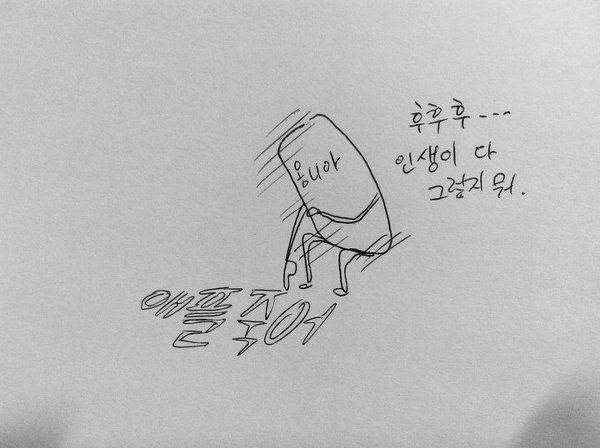 후후후----
인생이 다
그렇지 뭐.
옴니아
애플 죽어